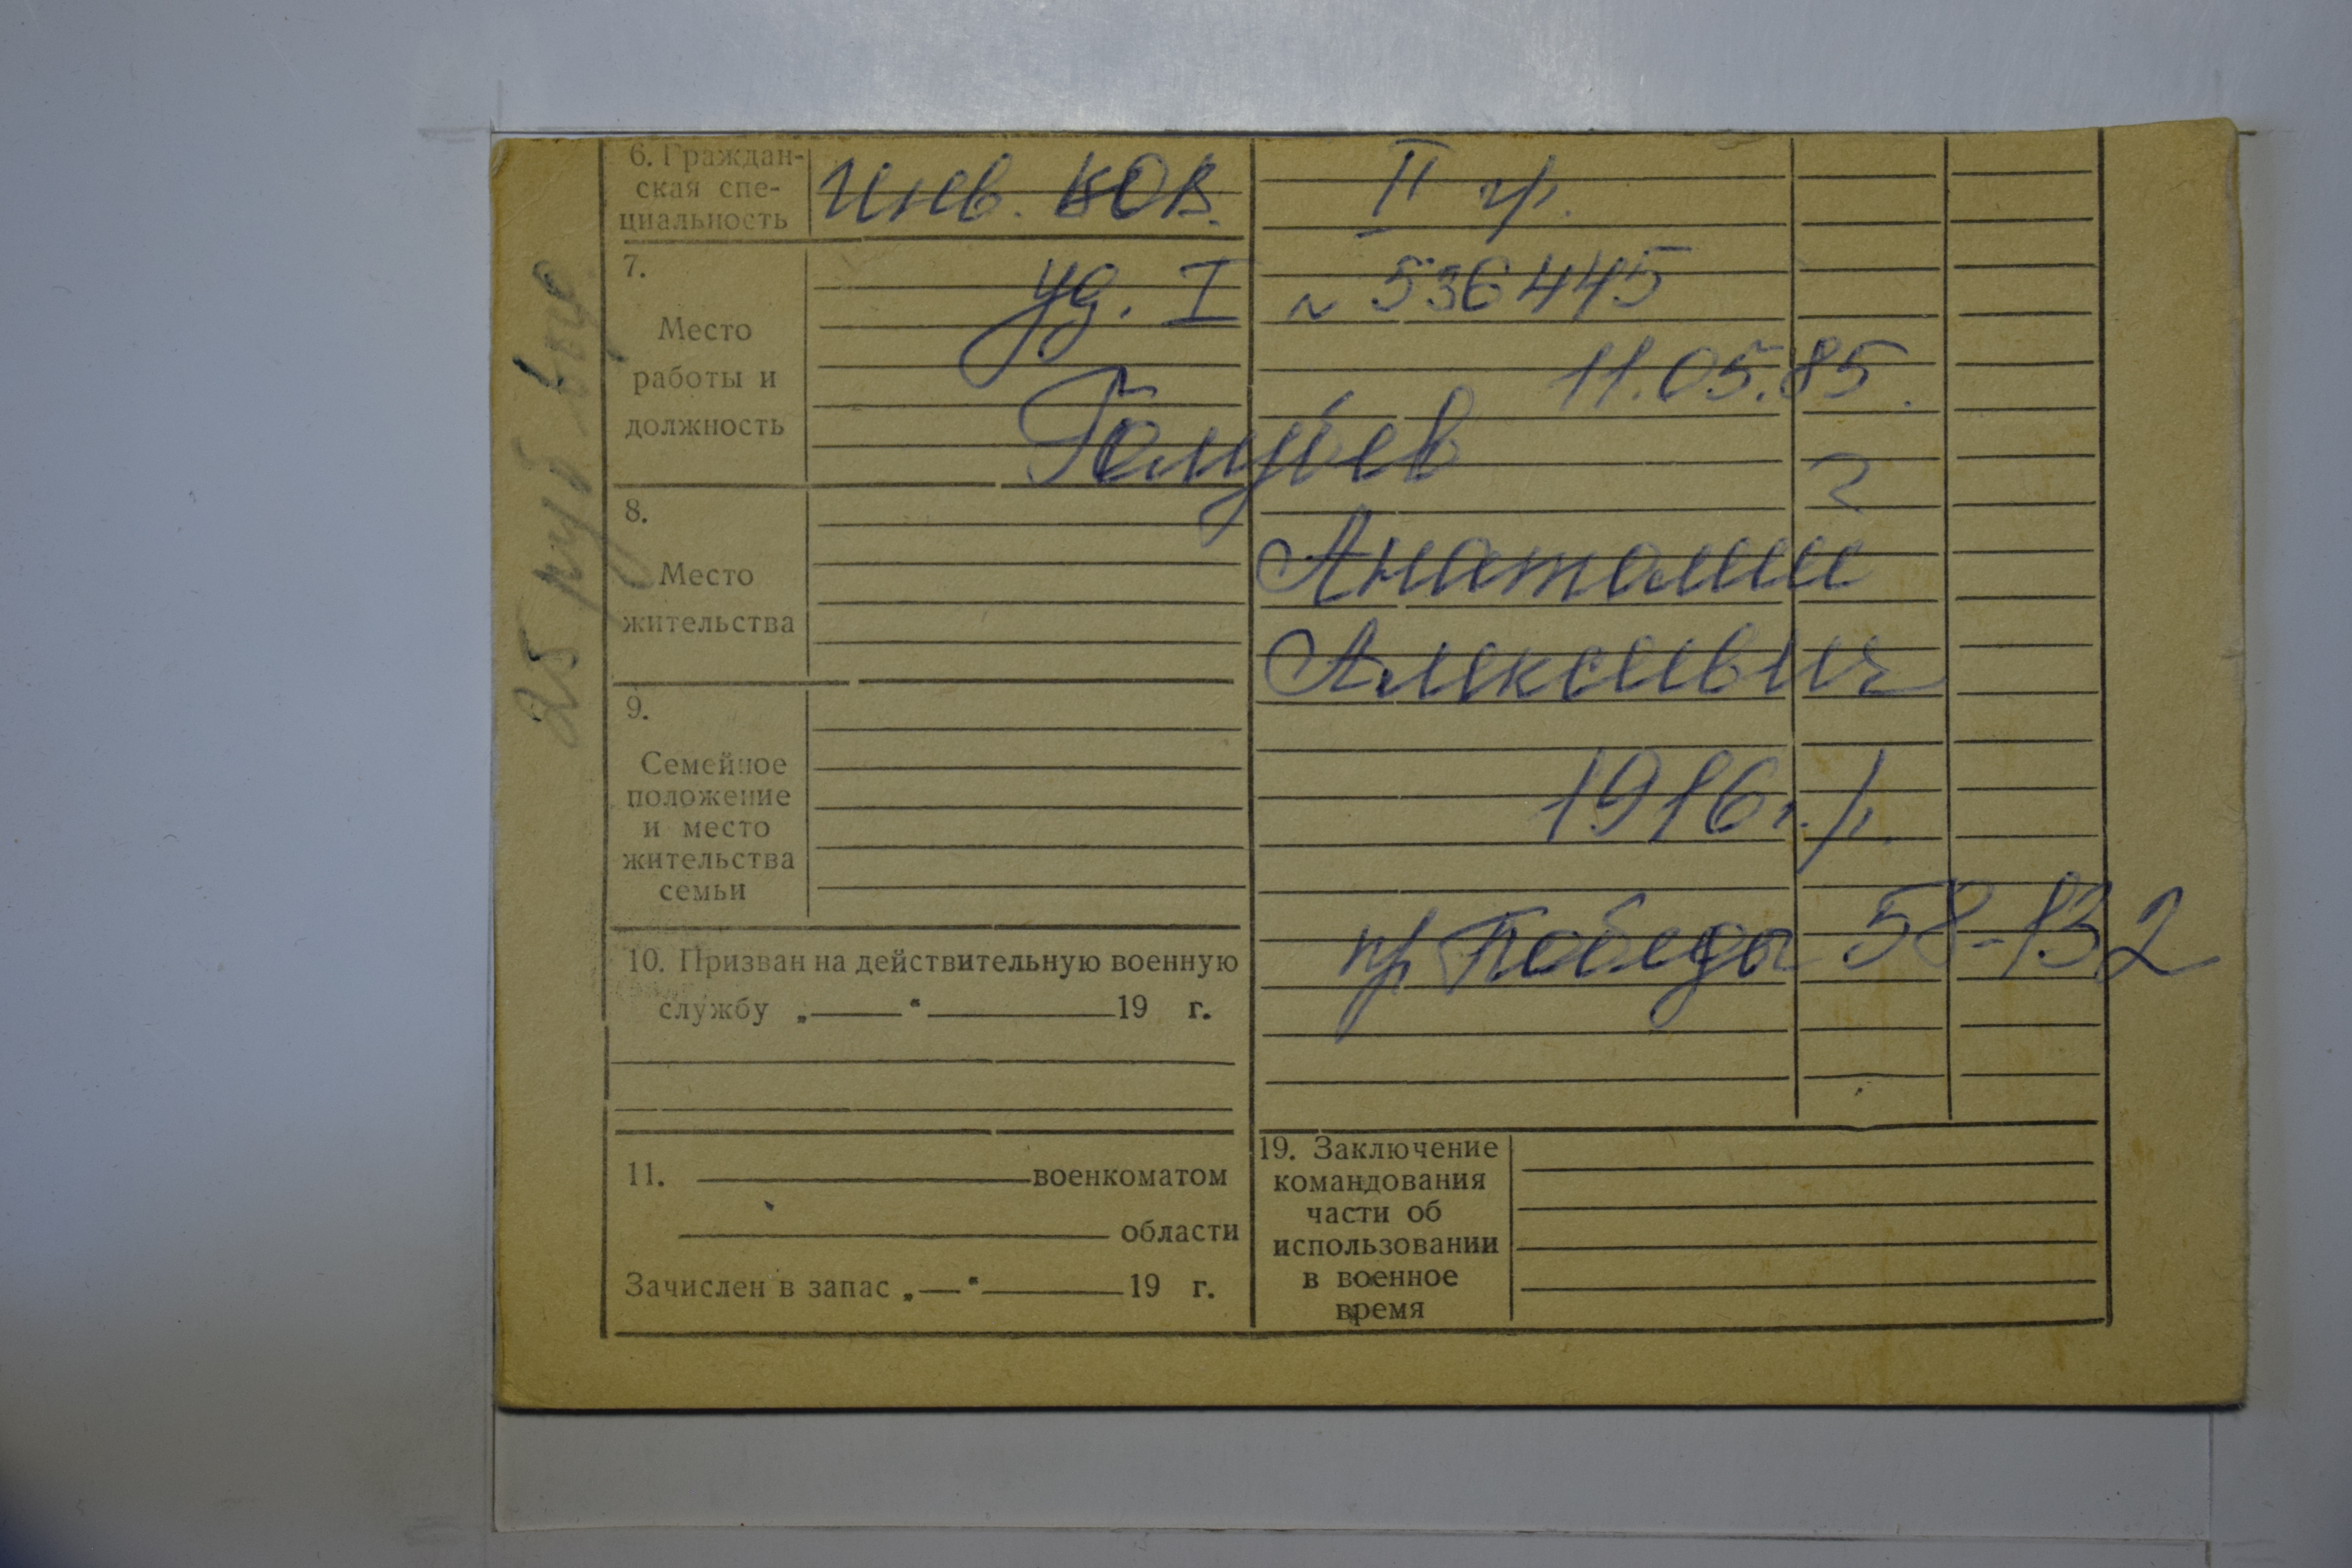 6. Граждан-
ская спе-
циальность
Инв. ВОВ. II гр.
7.
Место
работы и
должность
уд. I № 536445
11.05.85.
Голубев
8.
Место
жительства
Анатолий
Алексеевич
9.
Семейное
положение
и место
жительства
семьи
1916 г.р.
пр Победы 58-132
10. Призван на действительную военную
службу „ “ 19 г.
11. военкоматом
области
Зачислен в запас „ “ 19 г.
19. Заключение
командования
части об
использовании
в военное
время
руб